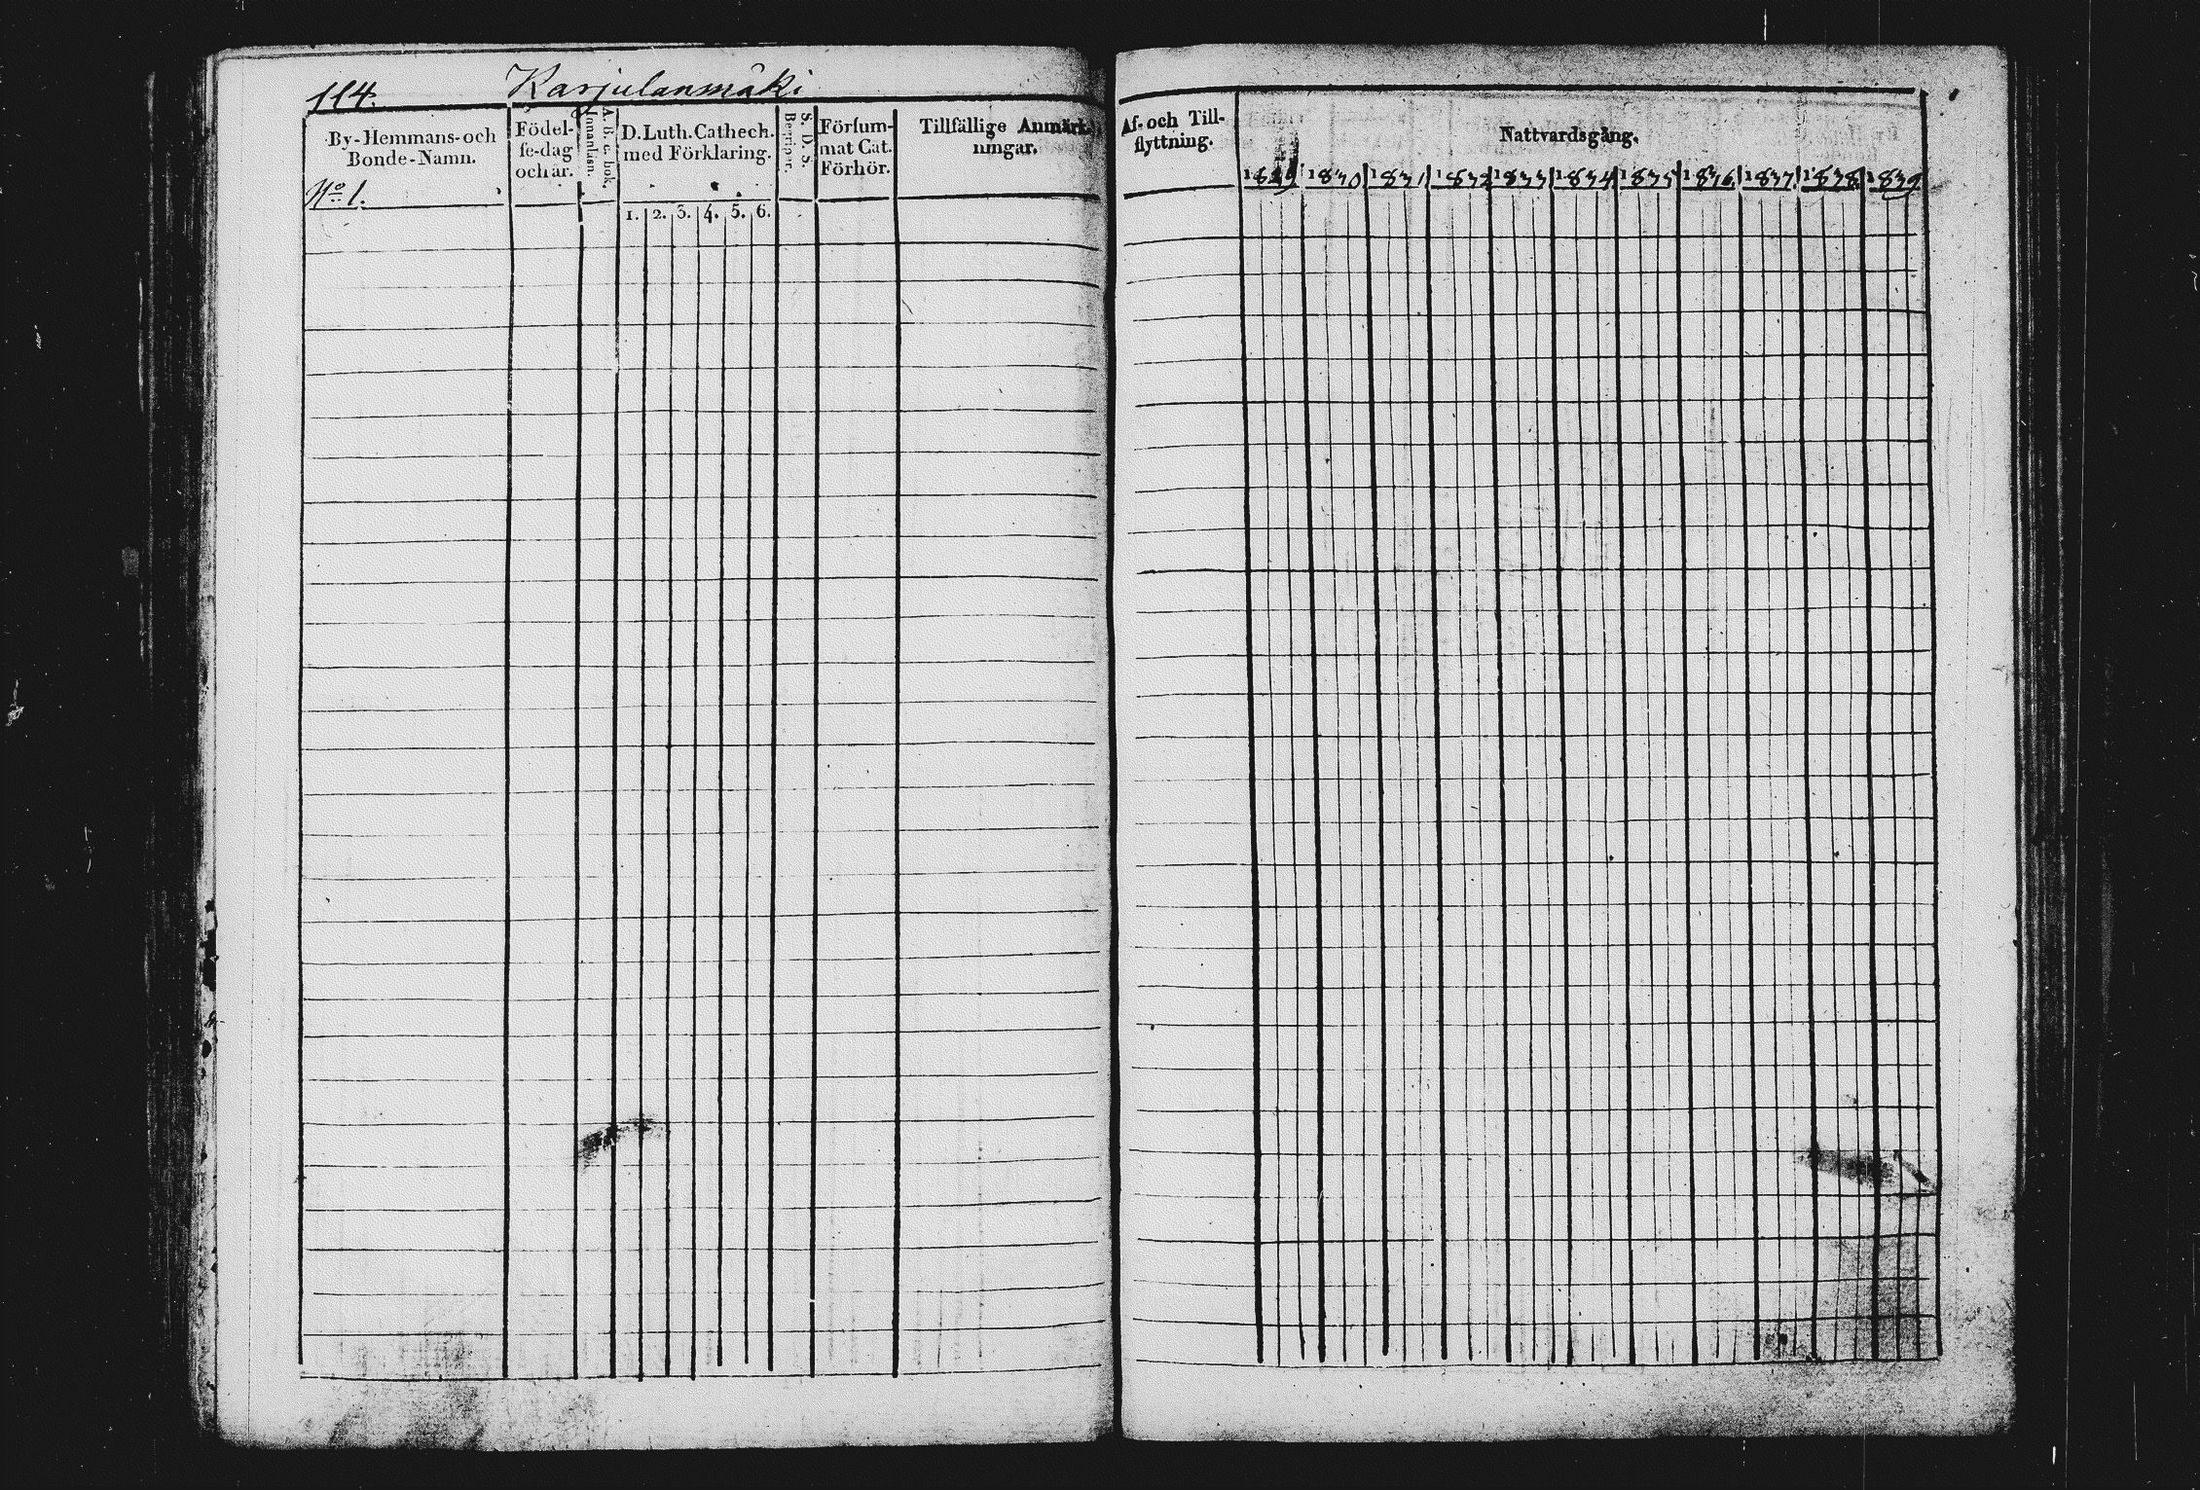 114. Karjulanmäki
By-Hemmans-och
Bonde-Namn.
No 1.
Födel-
se-dag
och år.
Innanläsn.
A. B. C. bok.
D. Luth. Cathech.
med Förklaring.
1. 2. 3. 4. 5. 6.
S. D. S.
Begriper.
Försum-
mat Cat.
Förhör.
Tillfällige Anmärk-
ningar.
Af- och Till-
flyttning.
Nattvardsgång.
1829 1830 1831 1832 1833 1834 1835 1836 1837 1838 1839